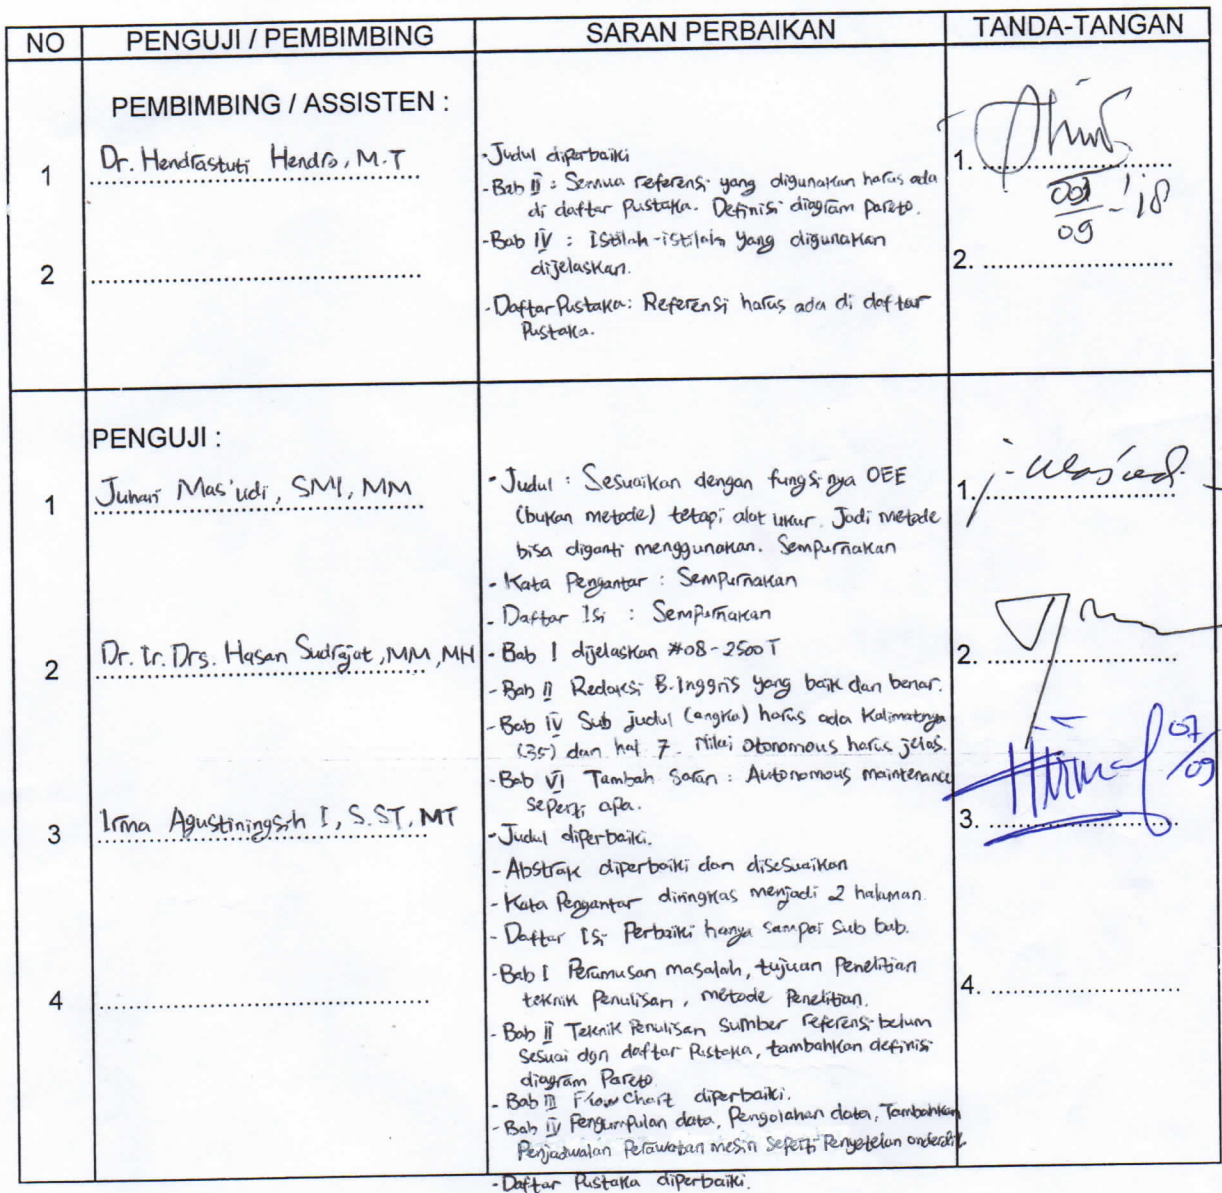 NO PENGUJI / PEMBIMBING SARAN PERBAIKAN TANDA-TANGAN
PEMBIMBING / ASSISTEN :
1 Dr. Hendrastuti Hendro, M.T
2
- Judul diperbaiki
- Bab II : Semua referensi yang digunakan harus ada
di daftar Pustaka. Definisi diagram pareto.
- Bab IV : Istilah-istilah yang digunakan
dijelaskan.
- Daftar Pustaka: Referensi harus ada di daftar
Pustaka.
1.
09 '18
2.
PENGUJI :
1 Juhari Mas'udi, SMI, MM
2 Dr. Ir. Drs. Hasan Sudrajat, MM, MH
3 Irma Agustiningsih I, S.ST, MT
4
- Judul : Sesuaikan dengan fungsinya OEE
(bukan metode) tetapi alat ukur. Jadi metode
bisa diganti menggunakan. Sempurnakan
- Kata Pengantar : Sempurnakan
- Daftar Isi : Sempurnakan
- Bab I dijelaskan #08-2500T
- Bab II Redaksi B.Inggris yang baik dan benar.
- Bab IV Sub judul (angka) harus ada Kalimatnya
(35) dan hal 7. Nilai otonomous harus jelas.
- Bab VI Tambah Saran : Autonomous maintenance
seperti apa.
- Judul diperbaiki.
- Abstrak diperbaiki dan disesuaikan
- Kata Pengantar diringkas menjadi 2 halaman
- Daftar Isi Perbaiki hanya sampai Sub bab.
- Bab I Perumusan masalah, tujuan Penelitian
teknik Penulisan, metode Penelitian.
- Bab II Teknik Penulisan Sumber referensi belum
sesuai dgn daftar Pustaka, tambahkan definisi
diagram Pareto
- Bab III Flow Chart diperbaiki.
- Bab IV Pengumpulan data, Pengolahan data, Tambahkan
Penjadwalan Perawatan mesin seperti Penyetelan onderdil.
- Daftar Pustaka diperbaiki.
1.
2.
3.
07/09
4.